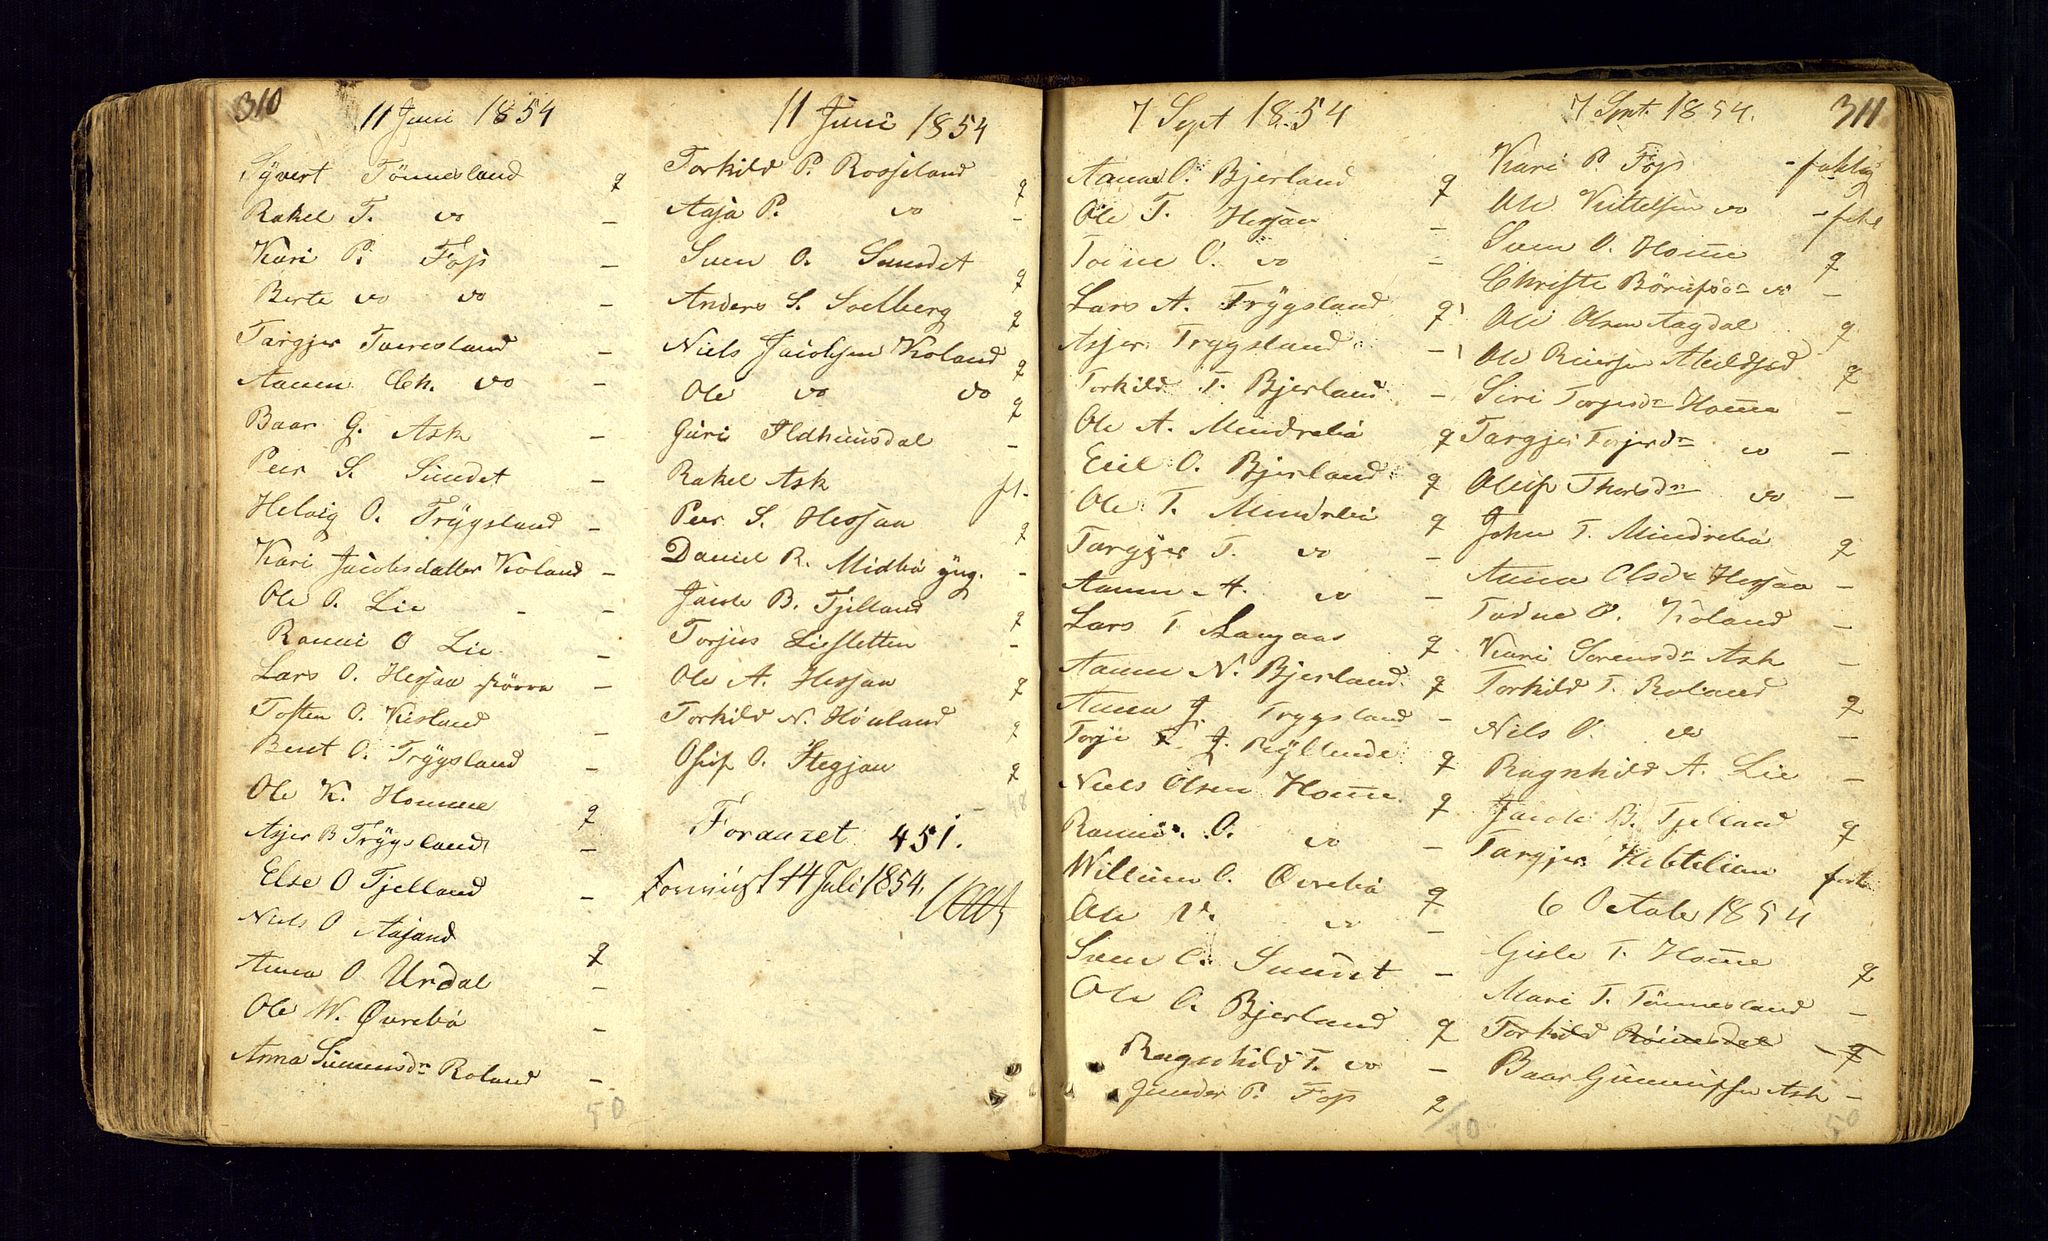 310
11 Juni 1854
Syvert Tönnesland q
Rakel T. do -
Kari P. Foss -
Berte do do -
Targjer Tveresland -
Aanen Ch. do -
Baar G. Ask -
Peer S. Sundet -
Helvig O. Trÿgsland -
Kari Jacobsdatter Koland -
Ole O. Lie - -
Ranni O Lie -
Lars O. Hessaa större -
Tosten O. Kisland -
Bent O. Trÿgsland -
Ole K. Homme q
Asjer B Trÿgsland -
Else O Tjelland -
Niels O Aasand q
Anna O Urdal -
Ole W. Øvrebö -
Anna Simensdr Roland -
50
11 Juni 1854
Torkild P. Rosseland q
Aasa P. do -
Sven O. Sundet q
Anders S. Soelberg q
Niels Jacobsen Koland q
Ole do do q
Guri Ildhuusdal -
Rakel Ask
Peer S. Hessaa q
Daniel R. Midbö yng. -
Jacob B. Tjelland q
Torjus Liesletten -
Ole A. Hessaa q
Torkild N. Hönland q
Osuf O. Stegjan q
48
Forauset 451.
14 Juli 1854.
7 Sept 1854
Aanas O. Bjerland q
Ole T. Hessaa -
Toine O. do -
Lars A. Trÿgsland q
Asjer Trygsland -
Torkild T. Bjerland -
Ole A. Mindrebö q
Eiel O. Bjerland q
Ole T. Mindrebö q
Targjer T. do -
Aanen A. do -
Lars T. Langaas q
Aanen N. Bjerland q
Anna J. Trygsland -
Torje J. Rÿllende q
Niels Olsen Home q
Ranni O. do -
Willum O. Øvrebö q
Ole do -
Sven O. Sundet -
Ole O. Bjerland q
Ragnhild T. do -
Gunder P. Foss q
40
311
7 Sept. 1854.
Kari P. Foss - fattig
Ole Kittelsen do -
Sven O. Home q
Christi Börufsdr do -
Ole Olsen Aagdal q
Ole Reiersen q
Siri Torjusdr Home -
Targjer Torjusdr do -
Thorsdr do -
John T. Mindrebö q
Anna Olsdr Hessaa -
Todne O. Koland -
Kari Sörensdr Ask -
Torkild T. Roland q
Nils O. do -
Ragnhild A. Lie -
Jacob B. Tjelland q
Targjer
6 October 1854
Gisle T. Home q
Mari T. Tönnesland -
Torkild Röinesdal - q
Baar Gunnufsen Ask -
50